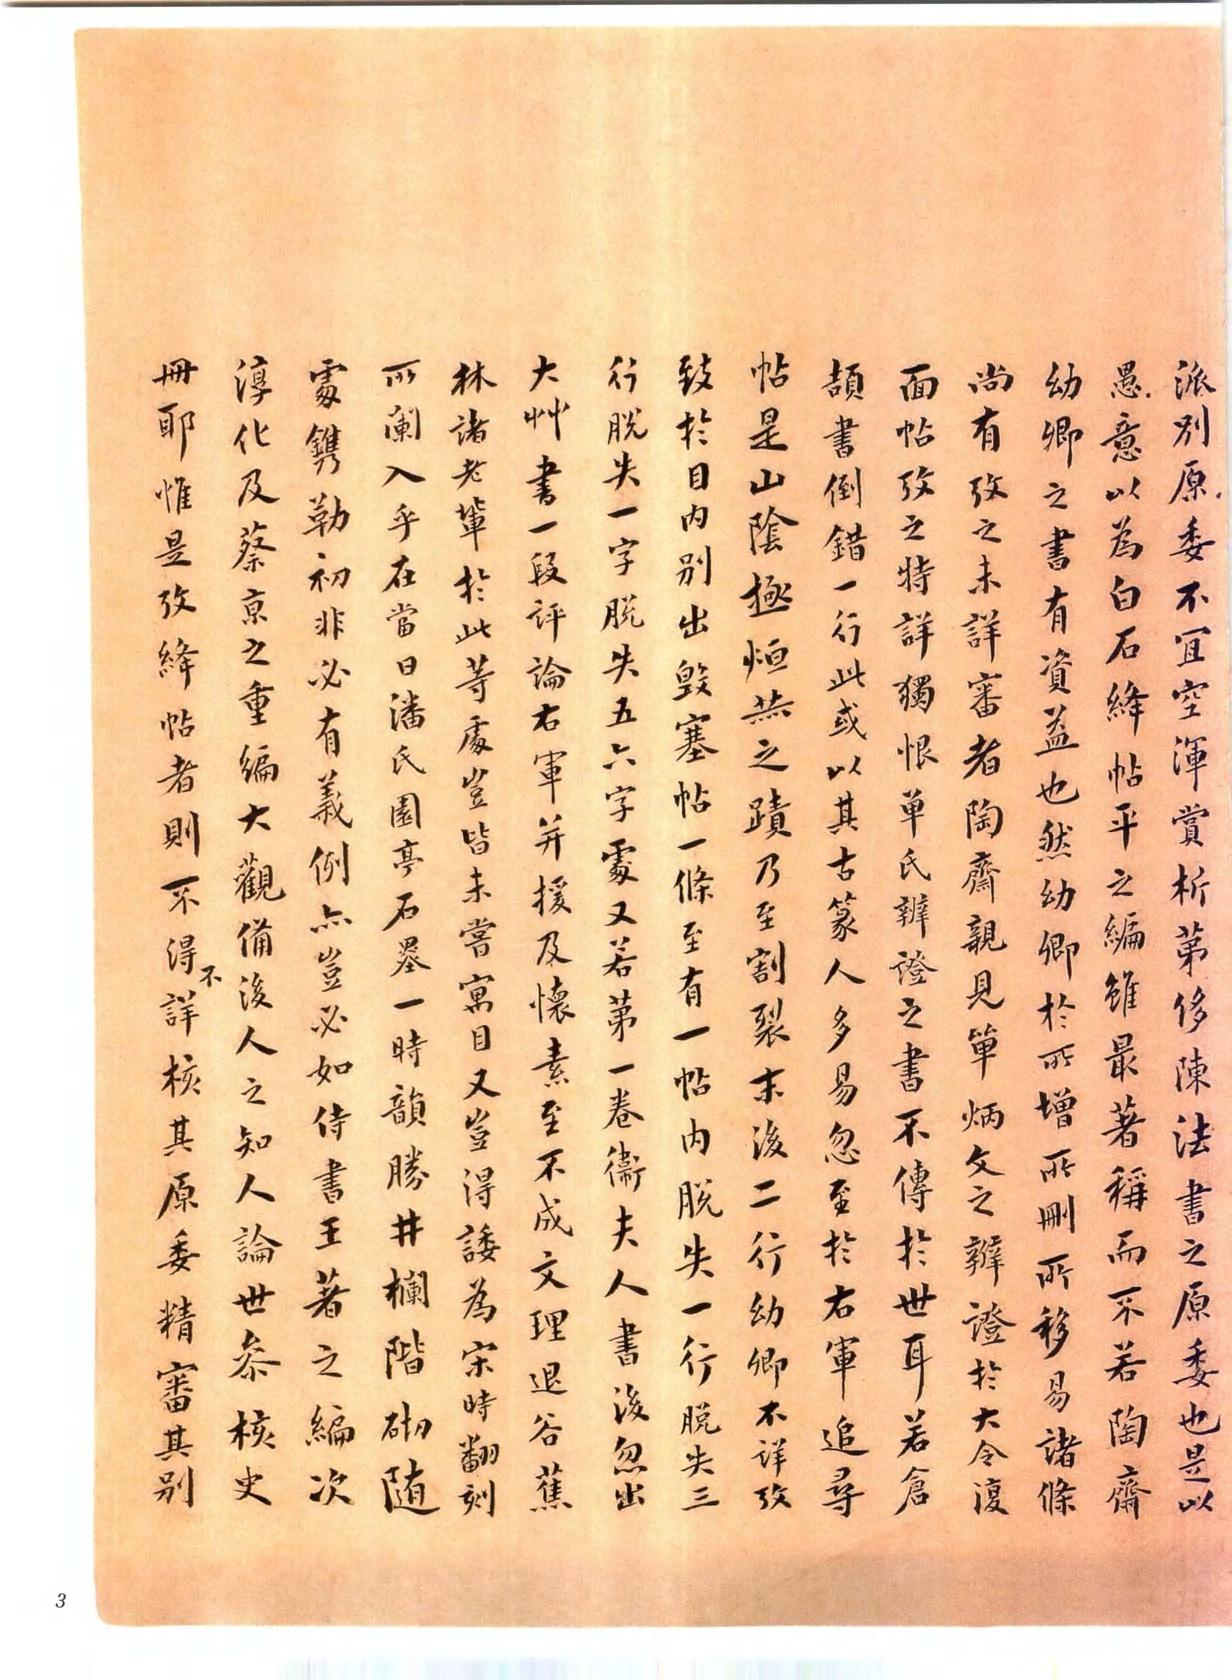 派別原委不宜空渾賞析第侈陳法書之原委也是以
愚意以為白石絳帖平之編雖最著稱而不若陶齋
幼卿之書有資益也然幼卿於所增所刪所移易諸條
尚有攷之未詳審者陶齋親見單炳文之辨證於大令復
面帖攷之特詳獨恨单氏辨證之書不傳於世耳若倉
頡書倒錯一行此或以其古篆人多易忽至於右軍追尋
帖是山陰極烜赫之蹟乃至割裂末後二行幼卿不詳攷
致於目内別出毀塞帖一條至有一帖内脱失一行脱失三
行脱失一字脱失五六字處又若第一卷衛夫人書後忽出
大艸書一段評論右軍并援及懷素至不成文理退谷蕉
林諸老輩於此等處豈皆未嘗寓目又豈得諉為宋時翻刻
所闌入乎在當日潘氏園亭石墨一時韻勝井欄階砌随
處鐫勒初非必有義例亦豈必如侍書王著之編次
淳化及蔡京之重編大觀備後人之知人論世叅核史
冊耶惟是攷絳帖者則不得不詳核其原委精審其別
3